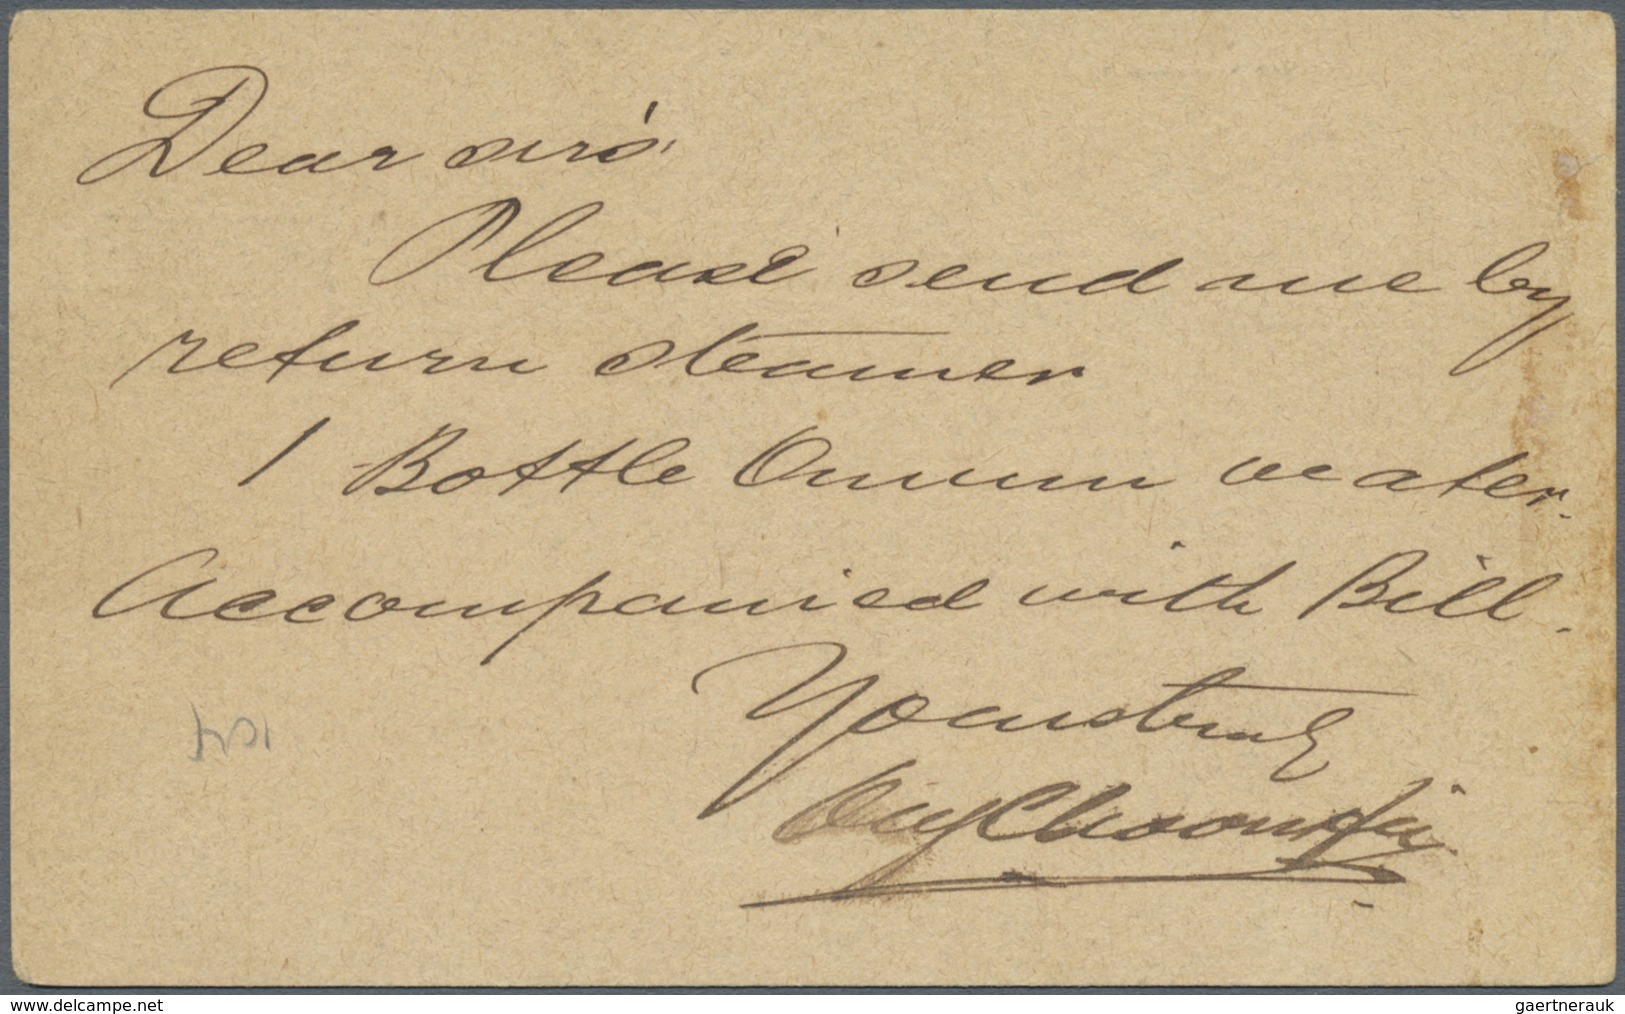 Dear sirs
Please send me by
return steamer
1 Bottle Omum water.
Accompanied with Bill.
Yours truly
www.delcampe.net
gaertnerauk